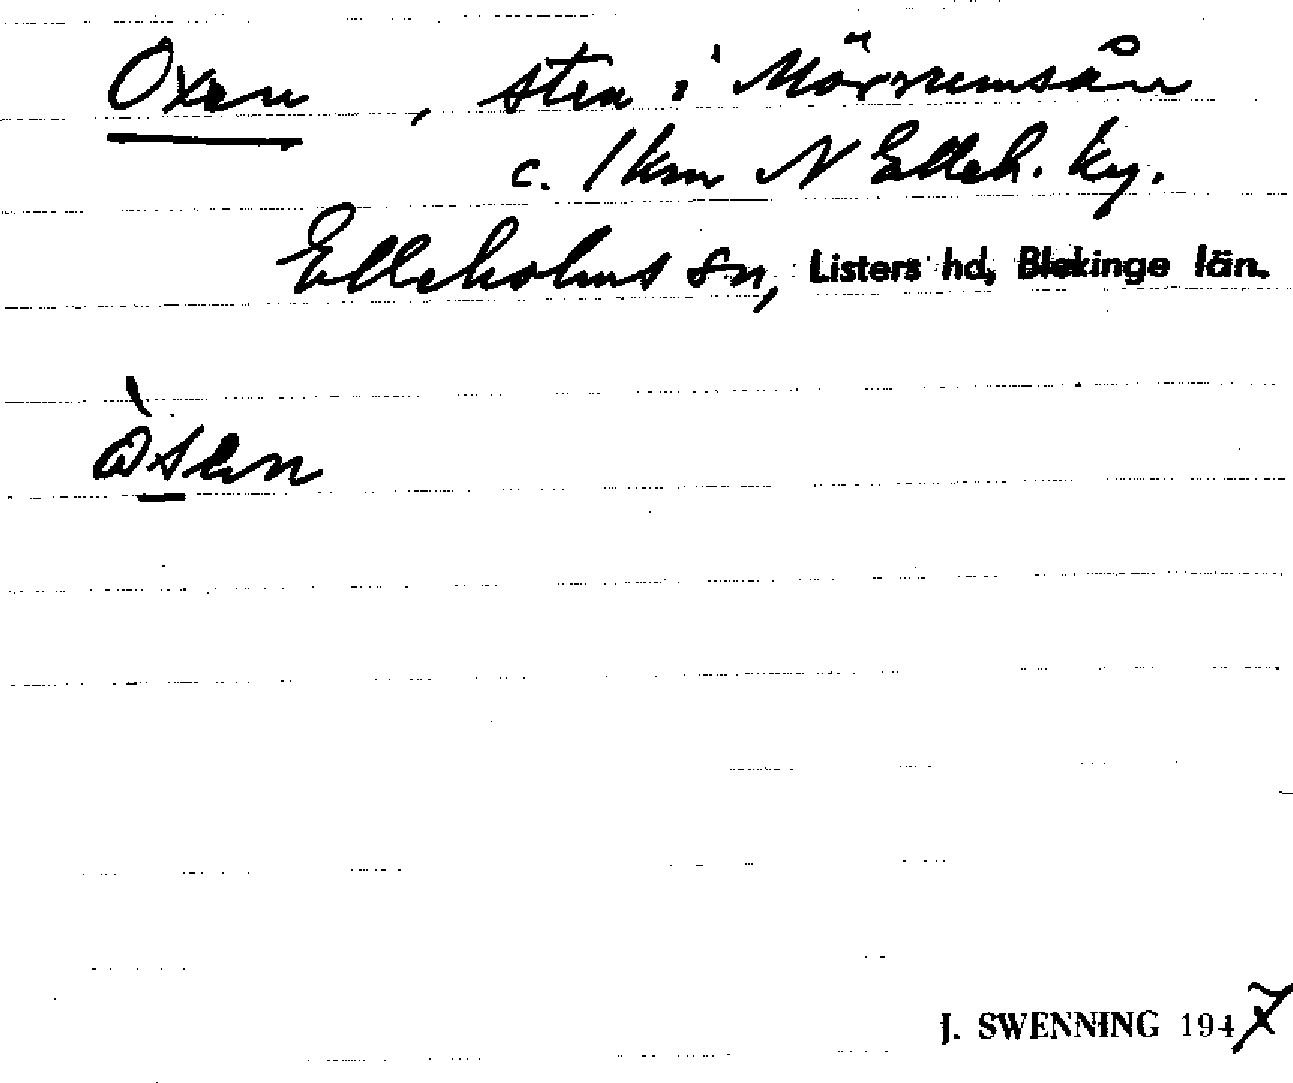 Oxen, sten i Mörrumsån
c. 1 km N Elleh. ky.
Elleholms sn, Listers hd, Blekinge län.
J. SWENNING 1947